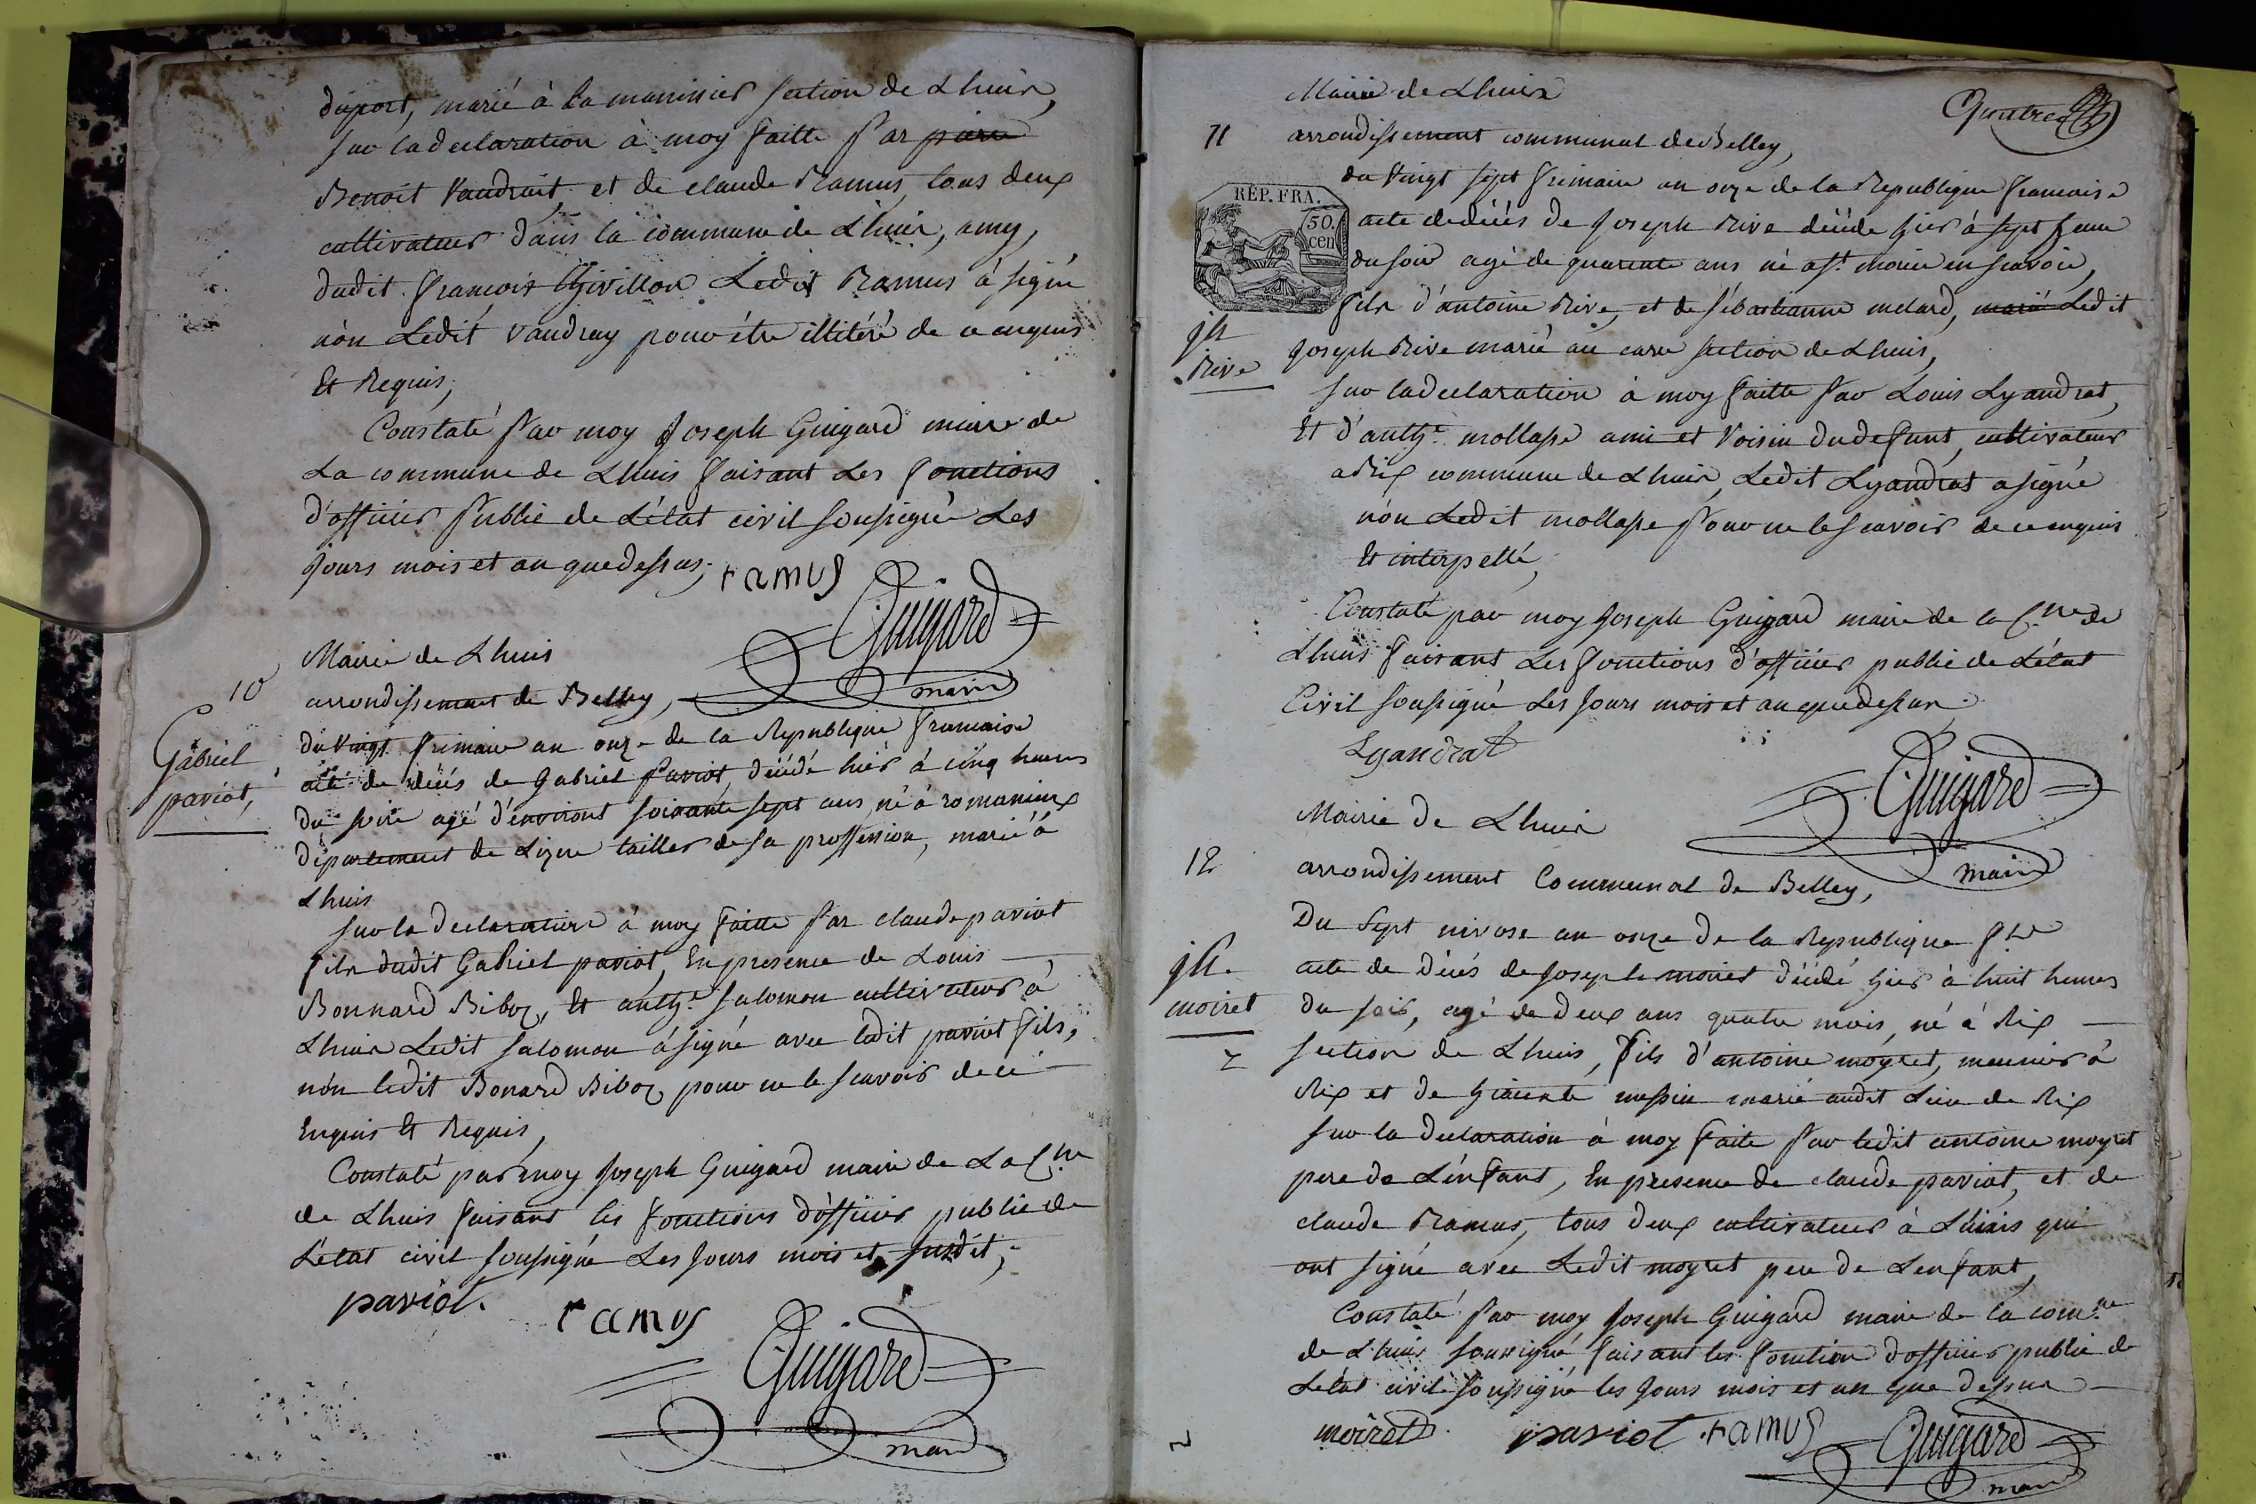 duport, marié à la manissier section de Lhuis,
sur la declaration à moy faitte par pierre
Benoit Vaudrait, et de claude Ramus, tous deux
cultivateur dans la commune de Lhuis, amy,
dudit francois Givillon Ledit Ramus à signé
nòn Ledit vaudray pour étre illitéré de ce enquis
Et Requis,
Constaté par moy Joseph Guigard maire de
La commune de Lhuis faisant Les fonctions
d'officier public de L'état civil soussigné Les
jours mois et an que dessus,
ramus
Guigard
maire
10
Gabriel
paviot,
Mairie de Lhuis
arrondissement de Belley,
Du vingt frimaire an onze de la Republique francaise
acte de décés de Gabriel paviot, décédé hiér à cinq heures
Du soire agé d'environt soixante sept ans, né à romanieux
Département de Lizere tailler de sa proffession, marié à
Lhuis
sur la Declaration à moy faitte par claude paviot
fils dudit Gabriel paviot, En presence de Louis
Bonnard Biboz, Et anth.e salomon cultivateur à
Lhuis Ledit salomon à signé avec ledit paviot fils,
nòn ledit Bonard Biboz pour ne le scavoir de cé
Enquis Et Requis,
Constaté par moy Joseph Guigard maire de La C.ne
de Lhuis faisant les fonctions d'officier public de
L'état civil soussigné Les jours mois et susdit,
paviot.
ramus
Guigard
maire
Quatre
Mairie de Lhuis
11
arrondissement communal de Belley,
du vingt sept frimaire an onze de la Republique francaise
RÉP. FRA.
50.
cen
acte de décés de Joseph Rive décédé hier à sept heure
du soir agé de quarente ans né a St. morie en scavoie,
fils d'antoine Rive, et de sébastianne melard, marié Ledit
jh
Rive
Joseph Rive marié au section de Lhuis,
sur la declaration à moy faitte par Louis Lyandrat,
Et d'anth.e mollasse ami et Voisin du defunt, cultivateur
a Rix commune de Lhuis, Ledit Lyandrat a signé
nòn Ledit mollasse pour ne le scavoir de ce enquis
Et interpellé,
Constaté par moy Joseph Guigard maire de la C.ne de
Lhuis faisant Les fonctions d'officier public de L'état
Civil soussigné Les jours mois et an que dessus.
Lyandrat
Guigard
maire
Mairie de Lhuis
12
arrondissement Communal de Belley,
Du Sept nivose an onze De la Republique f.se
jh.
moiret
2
acte de Décés de Joseph moiret Décédé hier à huit heures
Du soir, agé de Deux ans quatre mois, né à Rix
section de Lhuis, fils d'antoine moyret, meunier à
Rix et de messin marié audit Lieu de Rix
sur la Declaration à moy faite par ledit antoine moyret
pere de L'énfant, En presence de claude paviot, et de
claude Ramus, tous Deux cultivateur à Lhuis qui
ont signé avec Ledit moyret pere De Lenfant,
Constaté par moy Joseph Guigard maire de la com.ne
de Lhuis soussigné, faisant les fonction d'officier public de
L'état civil soussigné les jours mois et an que Dessus
moiret
paviot
ramus
Guigard
maire
2